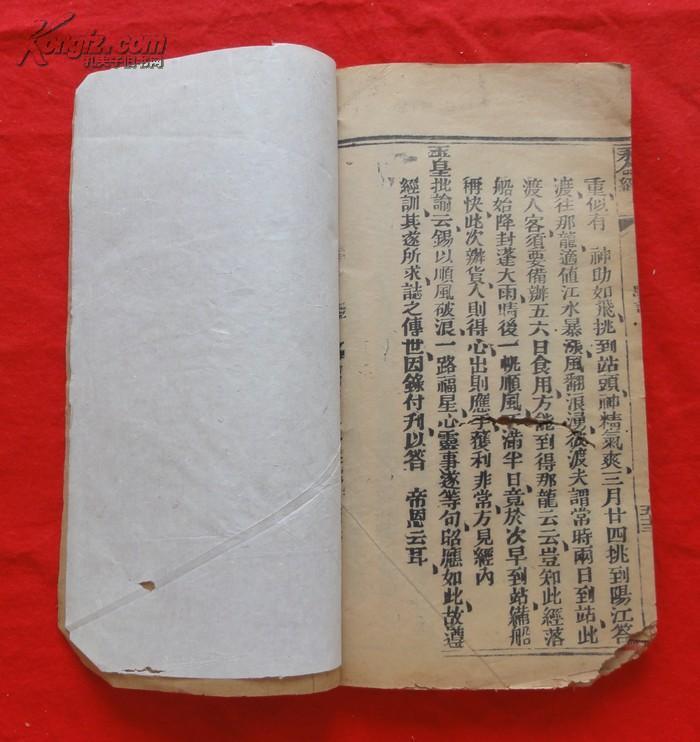 Kongfz.com
孔夫子旧书网
重似有 神助如飛挑到站頭神精氣爽三月廿四挑到陽江答
渡往那龍適值江水暴漲風翻浪湧後渡夫謂常時兩日到站此
渡人客須要備辦五六日食用方能到得那龍云云豈知此經落
船始降封蓬大雨晴後一帆順風不滿半日竟於次早到站備船
稱快此次辦貨入則得心出則應手獲利非常方見經內
玉皇批諭云錫以順風破浪一路福星心靈事遂等句昭應如此故遵
經訓其遂所求誌之傳世因錄付刋以答 帝恩云耳
五十三